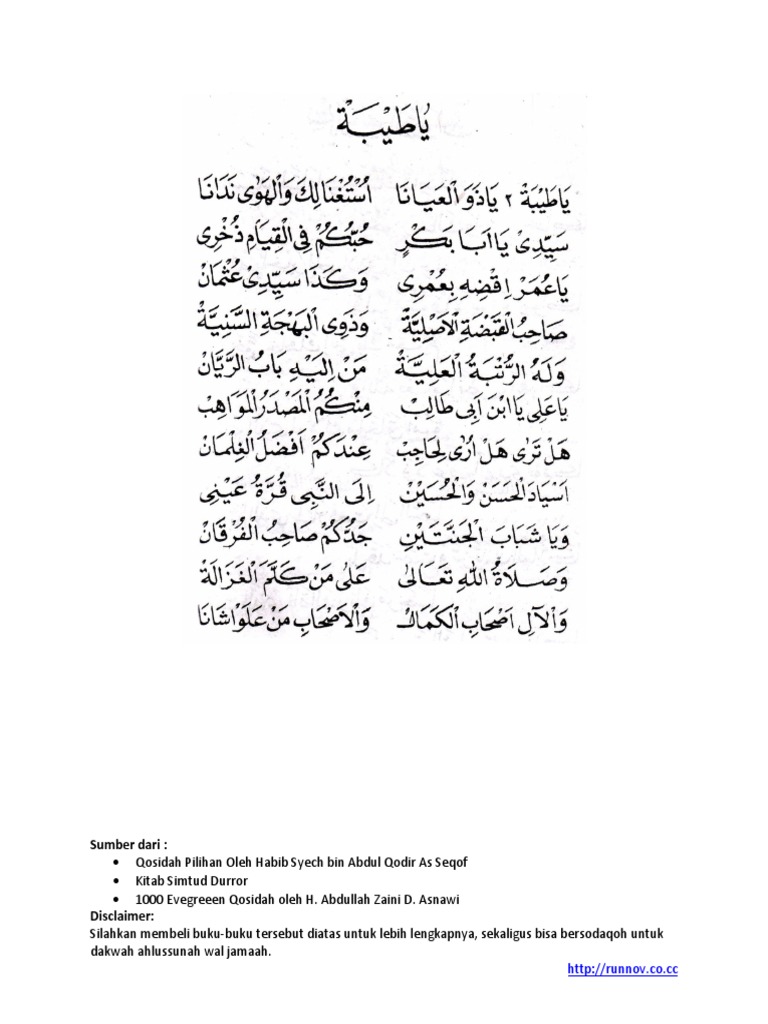 يَاطَيْبَةْ
يَاطَيْبَةْ ٢ يَاذَوَ الْعَيَانَا اُسْتُغْنَالِكَ وَالْهَوٰى نَدَانَا
سَيِّدِىْ يَا اَبَا بَكْرٍ حُبُّكُمْ فِى الْقِيَامِ ذُخْرِى
يَاعُمَرْ اِقْضِهِ بِعُمْرِى وَكَذَا سَيِّدِىْ عُثْمَانْ
صَاحِبُ الْقَبْضَةِ الْاَصْلِيَّةْ وَذَوِى الْبَهْجَةِ السَّنِيَّةْ
وَلَهُ الرُّتْبَةُ الْعَلِيَّةْ مَنْ اِلَيْهِ بَابُ الرَّيَّانْ
يَاعَلِى يَا ابْنَ اَبِى طَالِبْ مِنْكُمُ الْمَصْدَرُ الْمَوَاهِبْ
هَلْ تَرٰى هَلْ اُرٰى لِحَاجِبْ عِنْدَكُمْ اَفْضَلُ الْغِلْمَانْ
اَسْيَادَ الْحَسَنْ وَالْحُسَيْنْ اِلَى النَّبِى قُرَّةُ عَيْنِى
وَيَا شَبَابَ الْجَنَّتَيْنِ جَدُّكُمْ صَاحِبُ الْفُرْقَانْ
وَصَلَاةُ اللهِ تَعَالٰى عَلٰى مَنْ كَلَّمَ الْغَزَالَةْ
وَالْآلِ اَصْحَابِ الْكَمَالْ وَالْاَصْحَابِ مَنْ عَلَوْاشَانَا
Sumber dari :
• Qosidah Pilihan Oleh Habib Syech bin Abdul Qodir As Seqof
• Kitab Simtud Durror
• 1000 Evegreeen Qosidah oleh H. Abdullah Zaini D. Asnawi
Disclaimer:
Silahkan membeli buku-buku tersebut diatas untuk lebih lengkapnya, sekaligus bisa bersodaqoh untuk
dakwah ahlussunah wal jamaah.
http://runnov.co.cc